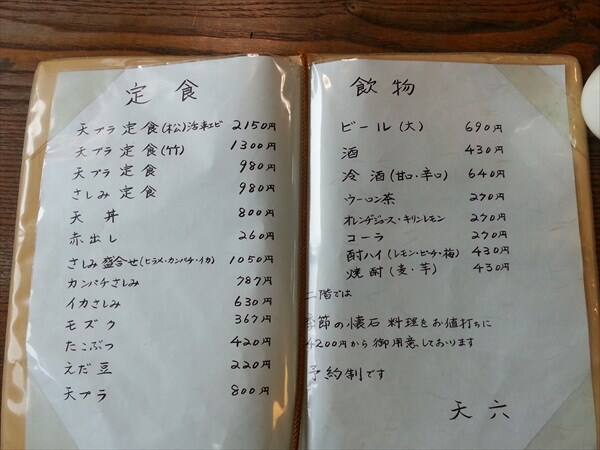 定食
天プラ定食(松)活車エビ 2150円
天プラ定食(竹) 1300円
天プラ定食 980円
さしみ定食 980円
天丼 800円
赤出し 260円
さしみ盛合せ(ヒラメ・カンパチ・イカ) 1050円
カンパチさしみ 787円
イカさしみ 630円
モズク 367円
たこぶつ 420円
えだ豆 220円
天プラ 800円
飲物
ビール(大) 690円
酒 430円
冷酒(甘口・辛口) 640円
ウーロン茶 270円
オレンヂジュース・キリンレモン 270円
コーラ 270円
酎ハイ(レモン・ピーチ・梅) 430円
焼酎(麦・芋) 430円
二階では
季節の懐石料理をお値打ちに
4200円から御用意しております
予約制です
天六